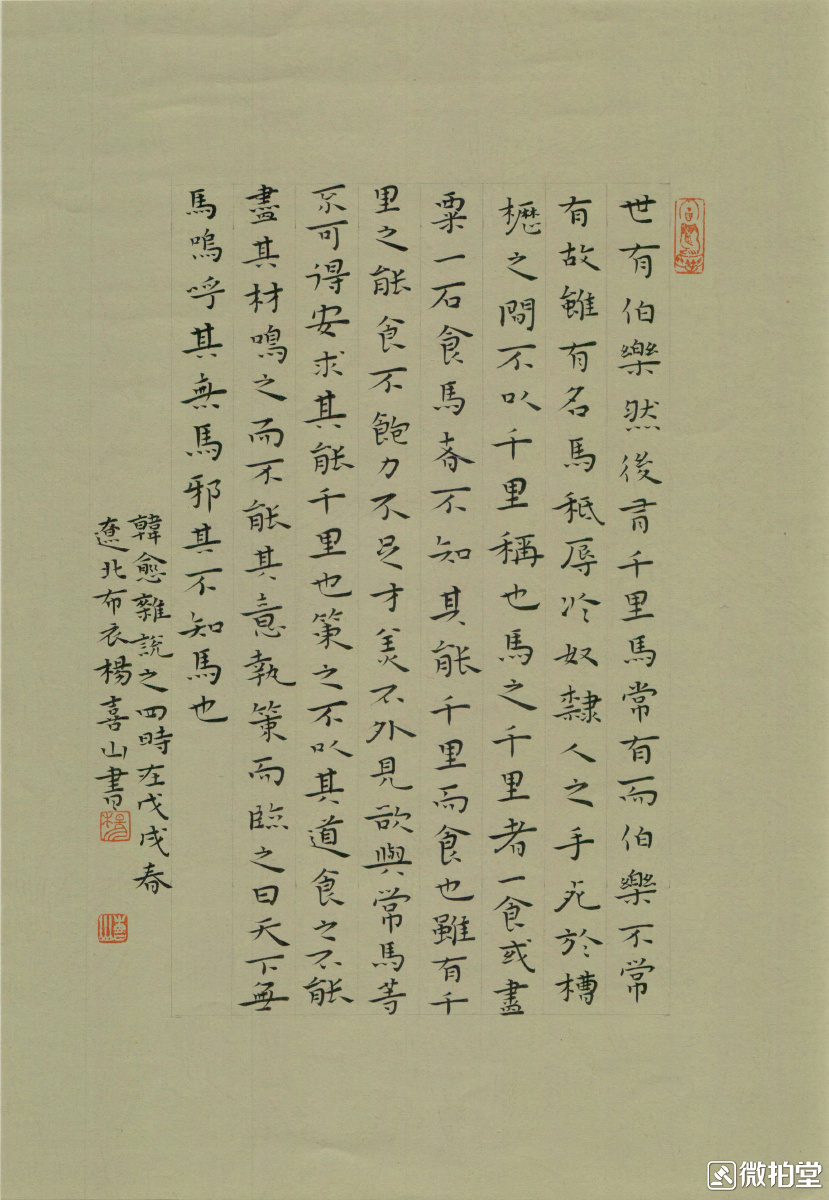 世有伯樂然後有千里馬常有而伯樂不常
有故雖有名馬秪辱於奴隸人之手死於槽
櫪之間不以千里稱也馬之千里者一食或盡
粟一石食馬者不知其能千里而食也雖有千
里之能食不飽力不足才美不外見欲與常馬等
不可得安求其能千里也策之不以其道食之不能
盡其材鳴之而不能其意執策而臨之曰天下無
馬嗚呼其無馬邪其不知馬也
韓愈雜說之四時在戊戌春
遼北布衣楊喜山書
楊
喜山
微拍堂